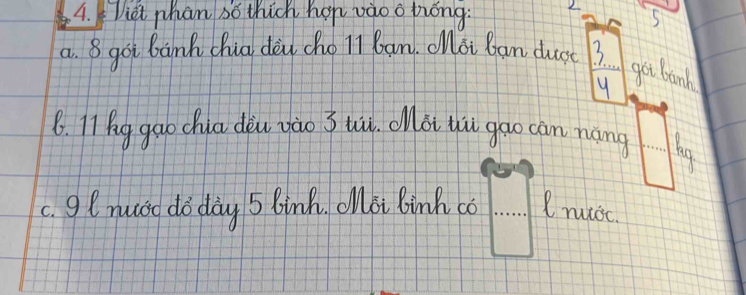 2 5
4. Viết phân số thích hợp vào ô trống:
a. 8 gói bánh chia đều cho 11 bạn. Mỗi bạn được 3.... 4 gói bánh.
b. 11 kg gạo chia đều vào 3 túi. Mỗi túi gạo cân nặng ...... kg
c. 9 l nước đổ đầy 5 bình. Mỗi bình có ...... l nước.